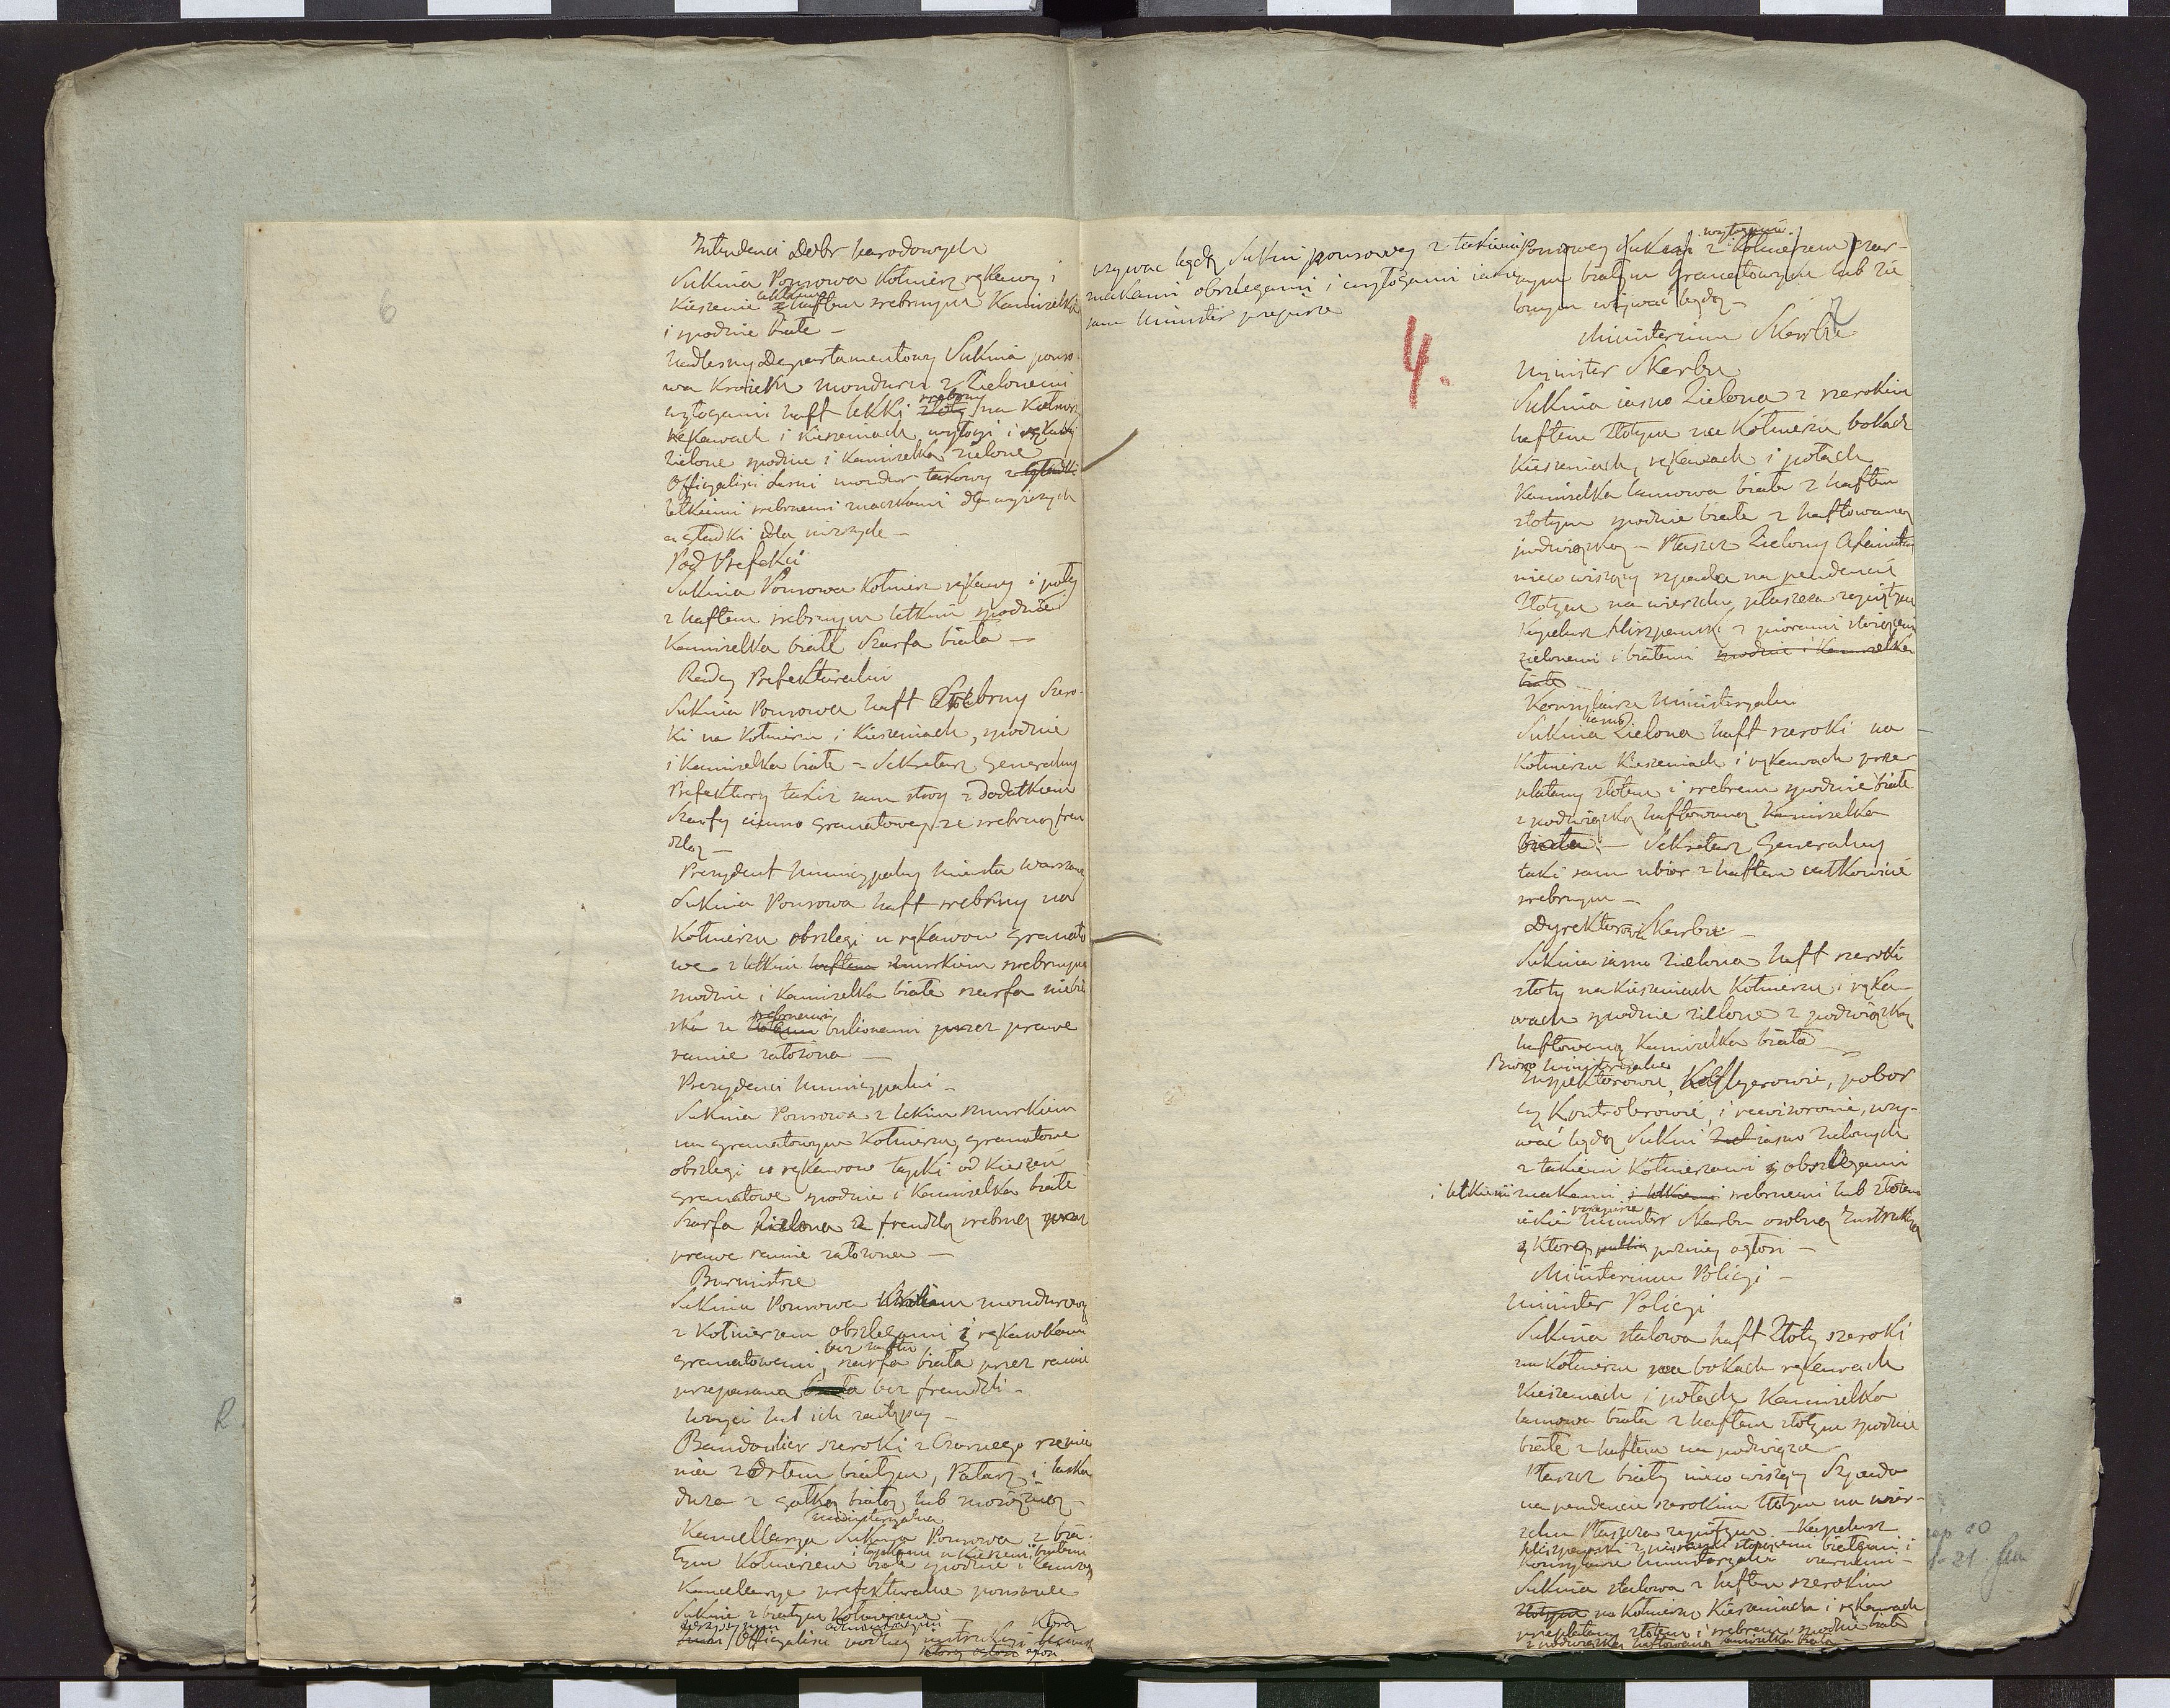 6
Intendenci Dobr Narodowych
Suknia Ponsowa Kołnierz rękawy i
Kieszenie z lekkim haftem srebrnym Kamizelka
i spodnie białe –
Nadlesny Departamentowy Suknia ponso-
wa Kroiem Monduru z Zielonemi
wyłogami haft lekki złoty srebrny na Kołnierzu
rękawach i Kieszeniach wyłogi i rękawy
Zielone spodnie i Kamizelka zielone
Officyaliści Leśni mondur takowy z
letkiemi srebrnemi znaczkami dla wyższych
a gładki dla niższych –
Pod Prefekci
Suknia Ponsowa Kołnierz rękawy i poły
z haftem srebrnym letkim spodnie
Kamizelka białe Szarfa biała –
Radcy Prefekturalni
Suknia Ponsowa haft Srebrny Szero-
ki na Kołnierzu i Kieszeniach, spodnie
i Kamizelka białe – Sekretarz Generalny
Prefektury takiż sam stroy z Dodatkiem
Szarfy ciemno granatowey ze srebrną fren
dzlą –
Prezydent Municypalny Miasta Warszawy
Suknia Ponsowa haft srebrny na
Kołnierzu obszlegi u rękawow granato
we z letkim haftem sznurkiem srebrnym
spodnie i Kamizelka białe szarfa niebie
ska ze złotemi srebrnemi bulionami przez prawe
ramie założona –
Prezydenci Municypalni –
Suknia Ponsowa z letkim sznurkiem
na granatowym Kołnierzu, granatowe
obszlegi u rękawow łapki od Kieszeni
granatowe spodnie i Kamizelka białe
Szarfa zielona z frendzlą srebrną przez
prawe ramie założona –
Burmistrze
Suknia Ponsowa mondurowa
z Kołnierzem obszlegami i rękawkami
granatowemi, bez haftu szarfa biała przez ramie
przepasana biała bez frendzli –
Woyci lub ich zastępcy –
Bandoulier szeroki z Czarnego rzemie
nia z Orłem białym, Pałasz i laska
duża z gałką białą lub mosiężną –
Kancellarya Ministeryalna Suknia Ponsowa z bia-
łym Kołnierzem i łapkami u Kieszeni białemi białe spodnie i Kamizelka
Kancellarye prefekturalne ponsowe
Suknie z białym Kołnierzem
Officyaliści podług instrukcyi Którą
ogłosi
używać będą Sukni ponsowey z takiemi
znakami obszlegami i wyłogami iakie
sam Minister przepisze
4.
Ponsowey Sukni z wyłogami Kołnierzem czar-
nym białym Granatowym lub zie
lonym używać będą –
7
Ministerium Skarbu
Minister Skarbu
Suknia iasno Zielona z szerokim
haftem złotym na Kołnierzu bokach
Kieszeniach, rękawach i połach
Kamizelka lamowa biała z haftem
złotym spodnie białe z haftowaną
podwiązką – Płaszcz Zielony Axamitny
nieco wiszący szpada na pendencie
Złotym na wierzchu płaszcza zapiętym
Kapelusz Hiszpanski z piorami stoiącemi
zielonemi i białemi spodnie i Kamizelka
białe
Konsyliarze Ministeryalni
Suknia iasno Zielona haft szeroki na
Kołnierzu Kieszeniach i rękawach prze-
platany złotem i srebrem spodnie białe
z podwiązką haftowaną Kamizelka
biała. – Sekretarz Generalny
taki sam ubior z haftem całkowicie
srebrnym –
Dyrektorowie Skarbu –
Suknia iasno zielona haft szeroki
złoty na Kieszeniach Kołnierzu i ręka-
wach spodnie zielone z podwiązką
haftowaną Kamizelka biała –
Biuro Ministeryalne
Inspektorowie, Kassyerowie, pobor
cy Kontrolerowie, i rewizorowie, uży-
wać będą Sukni iasno zielonych
z takiemi Kołnierzami i obszlegami
i letkiemi znakami i letkiemi srebrnemi lub złotemi
iakie przepisze Minister Skarbu osobną Instrukcyą
którą pozniey ogłosi –
Ministerium Policyi –
Minister Policyi
Suknia stalowa haft Złoty szeroki
na Kołnierzu na bokach rękawach
Kieszeniach i połach Kamizelka
lamowa biała z haftem złotym spodnie
białe z haftem na podwiązce
Płaszcz biały nieco wiszący Szpada
na pendencie szerokim Złotym na wierz-
chu Płaszcza zapiętym. Kapelusz
Hiszpanski z piorami stoiącemi białemi i
Konsyliarze Ministeryalni czarnemi –
Suknia stalowa z haftem szerokim
złotym na Kołnierzu Kieszeniach i rękawach
przeplatany złotem i srebrem spodnie białe
z podwiązką haftowaną Kamizelka biała
R